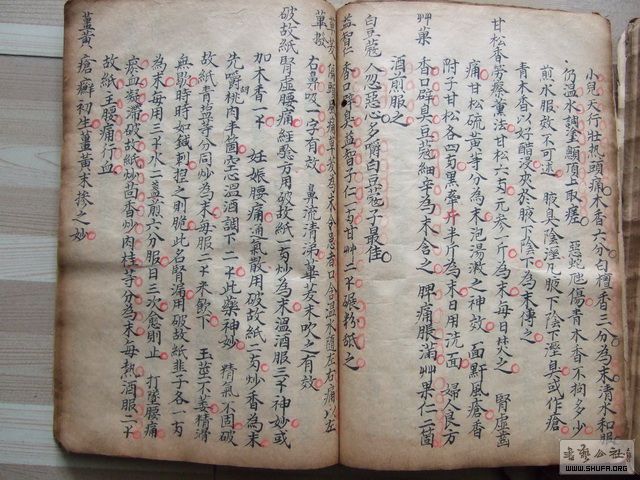 小兒天行壯熱頭痛木香六分白檀香三分為末清水和服
仍温水調塗顖頂上取瘥 惡蛇虺傷青木香不拘多少
煎水服效不可述 腋臭陰溼凡腋下陰下溼臭或作瘡
青木香以好醋浸夾於腋下陰下為末傅之
甘松香勞瘵薰法甘松六兩元參一斤為末每日焚之 腎虛齒
痛甘松硫黃等分為末泡湯漱之神效 面䵟風瘡香
附子甘松各四兩黑牽半斤為末日用洗面 婦人良方
草菓 香口辟臭豆蔻細辛為末含之 脾痛脹滿草果仁二箇
酒煎服之
白豆蔻 人忽惡心多嚼白豆蔻子最佳
益智仁 香口辟臭益智子仁一兩甘草二錢碾粉舐之
蓽茇 偏頭痛蓽茇為末令患者口含温水隨左右痛以左
右鼻吸一字有效 鼻流清涕蓽茇末吹之有效
破故紙 腎虛腰痛經驗方用破故紙一兩炒為末温酒服三錢神妙或
加木香一錢 妊娠腰痛通氣散用破故紙二兩炒香為末
先嚼胡桃肉半箇空心温酒調下二錢此藥神妙 精氣不固破
故紙青鹽等分同炒為末每服二錢米飲下 玉莖不萎精滑
無歇時時如鍼刺捏之則脆此名腎漏用破故紙韭子各一兩
為末每用三錢水二盞煎六分服日三次愈則止 打墜腰痛
瘀血凝滯破故紙炒茴香炒肉桂等分為末每熱酒服二錢
故紙主腰痛行血
薑黃 瘡癬初生薑黃末摻之妙
書法公社
WWW.SHUFA.ORG